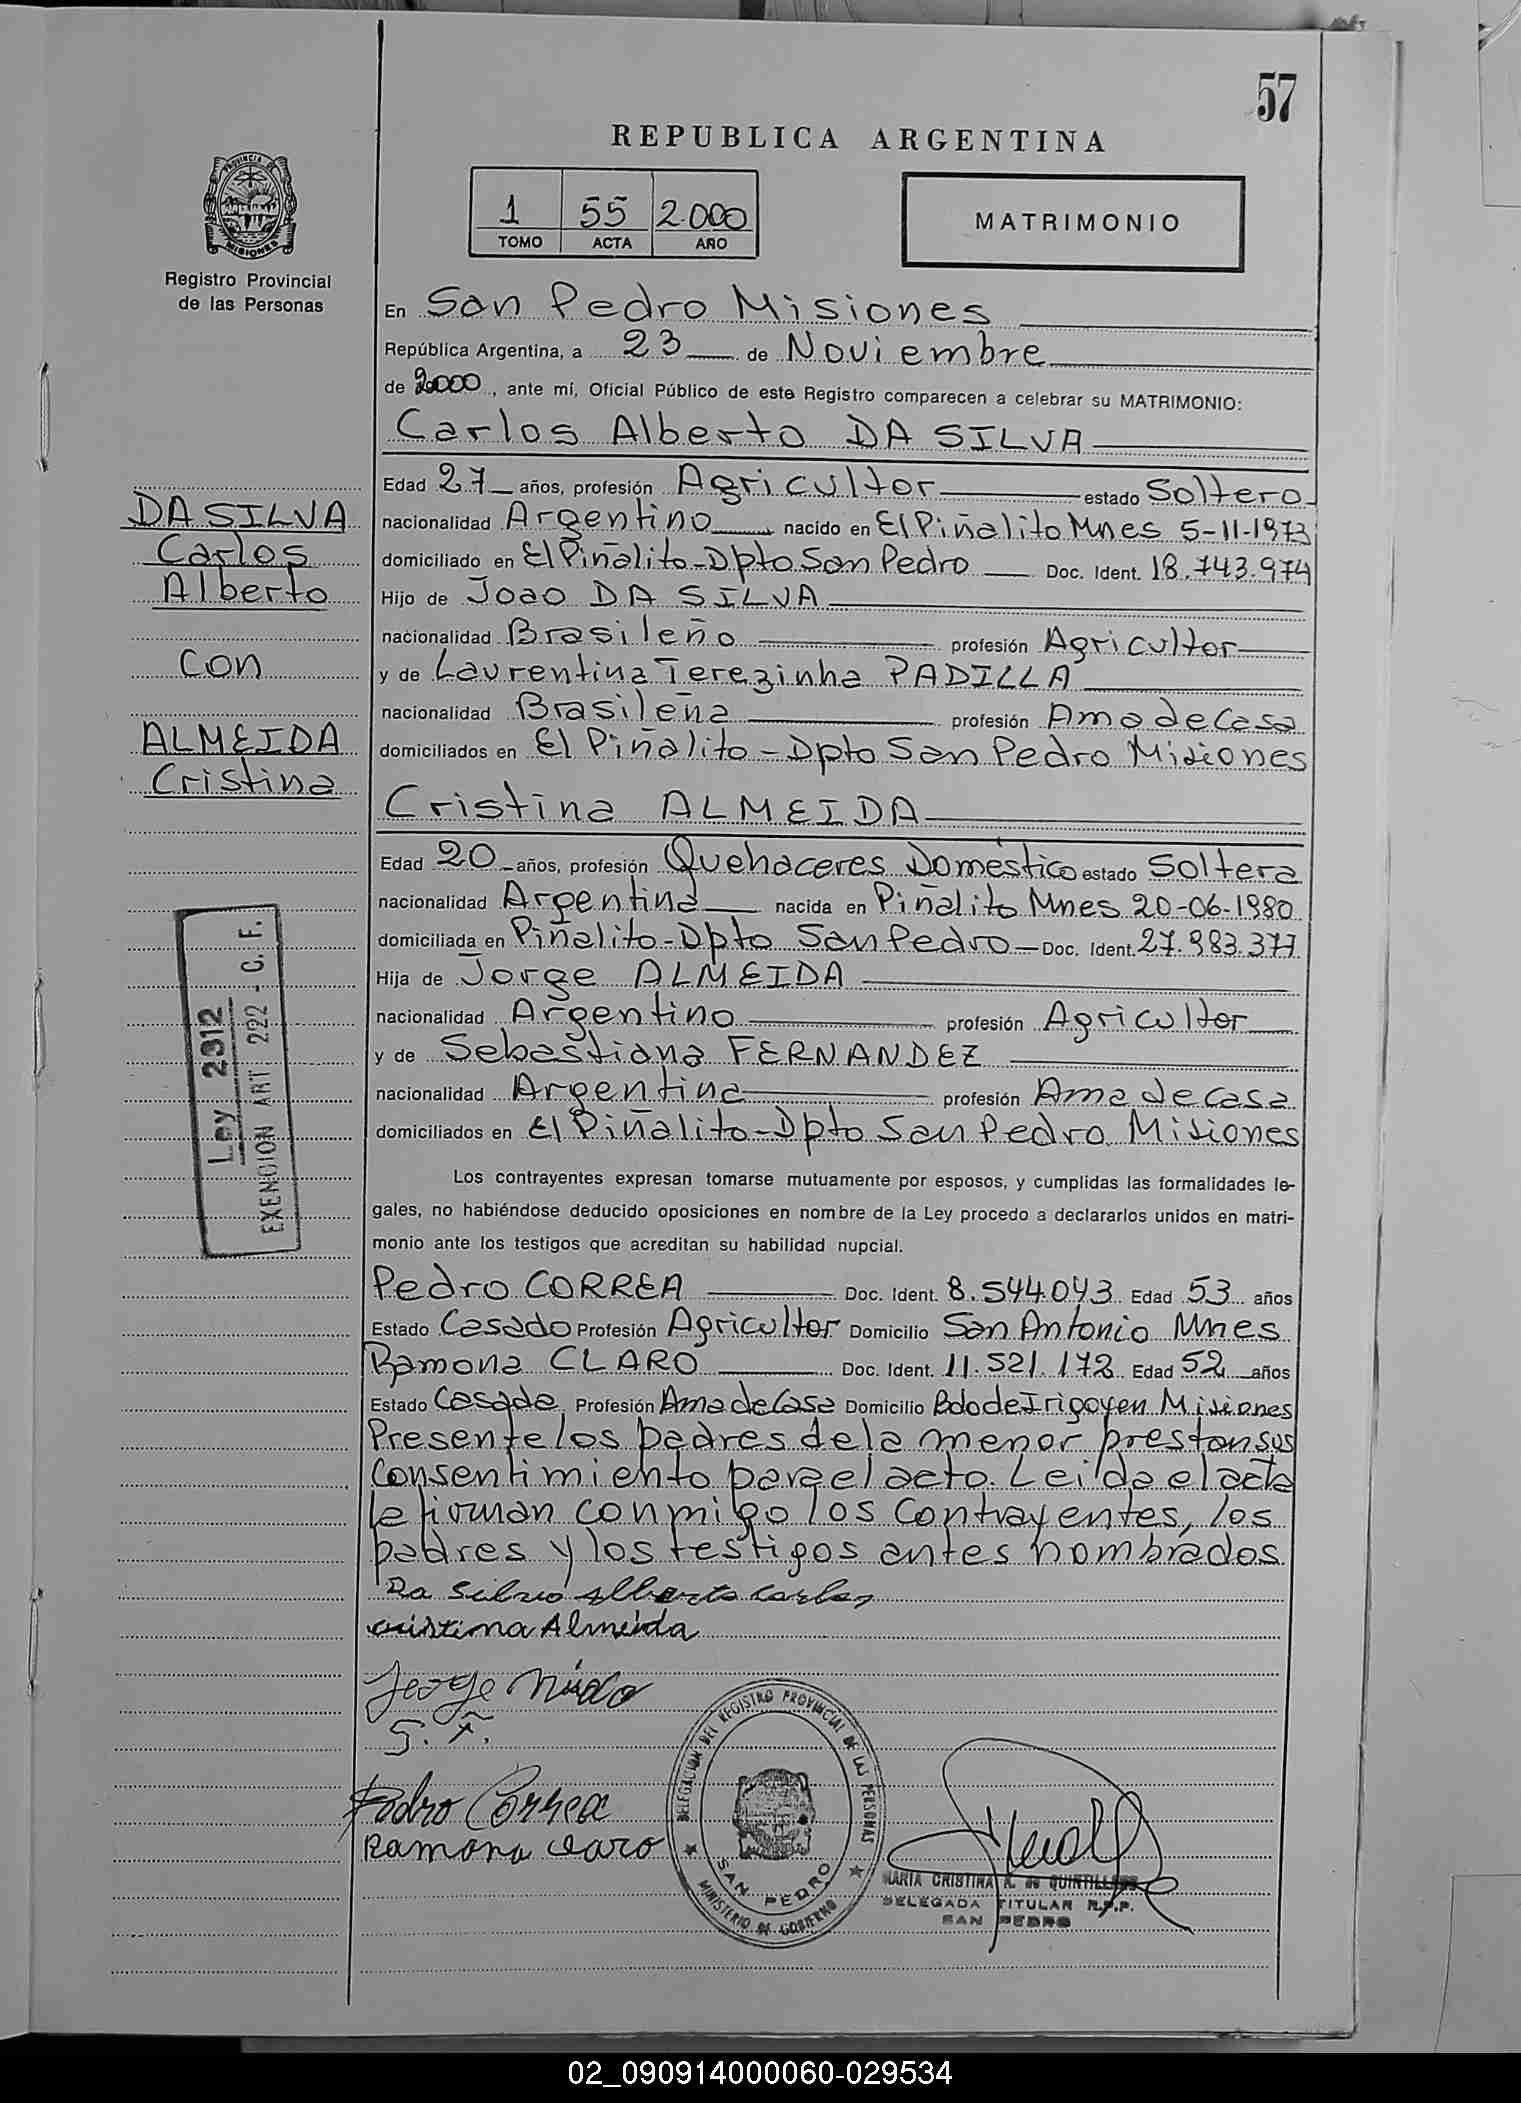 57
REPUBLICA ARGENTINA
PROVINCIA DE MISIONES
Registro Provincial
de las Personas
1 55 2.000
TOMO ACTA AÑO
MATRIMONIO
En San Pedro Misiones
República Argentina, a 23 de Noviembre
de 2000, ante mí, Oficial Público de este Registro comparecen a celebrar su MATRIMONIO:
Carlos Alberto DA SILVA
Edad 27 años, profesión Agricultor estado Soltero
nacionalidad Argentino nacido en El Piñalito Mnes 5-11-1973
domiciliado en El Piñalito-Dpto San Pedro Doc. Ident. 18.743.974
Hijo de Joao DA SILVA
nacionalidad Brasileño profesión Agricultor
y de Laurentina Terezinha PADILLA
nacionalidad Brasileña profesión Ama de Casa
domiciliados en El Piñalito-Dpto San Pedro Misiones
DA SILVA
Carlos
Alberto
con
ALMEIDA
Cristina
Cristina ALMEIDA
Edad 20 años, profesión Quehaceres Doméstico estado Soltera
nacionalidad Argentina nacida en Piñalito Mnes 20-06-1980
domiciliada en Piñalito-Dpto San Pedro Doc. Ident. 27.983.377
Hija de Jorge ALMEIDA
nacionalidad Argentino profesión Agricultor
y de Sebastiana FERNANDEZ
nacionalidad Argentina profesión Ama de Casa
domiciliados en El Piñalito-Dpto San Pedro Misiones
Ley 2312
EXENCION ART 222 - C. F.
Los contrayentes expresan tomarse mutuamente por esposos, y cumplidas las formalidades le-
gales, no habiéndose deducido oposiciones en nombre de la Ley procedo a declararlos unidos en matri-
monio ante los testigos que acreditan su habilidad nupcial.
Pedro CORREA Doc. Ident. 8.544.043 Edad 53 años
Estado Casado Profesión Agricultor Domicilio San Antonio Mnes
Ramona CLARO Doc. Ident. 11.521.172 Edad 52 años
Estado Casada Profesión Ama de Casa Domicilio Bdo de Irigoyen Misiones
Presente los padres de la menor prestan sus
consentimiento para el acto. Leida el acta
la firman conmigo los contrayentes, los
padres y los testigos antes nombrados
Da Silva Alberto Carlos
cristina Almeida
Jorge
S. F.
Pedro Correa
Ramona claro
DELEGACION DEL REGISTRO PROVINCIAL DE LAS PERSONAS
SAN PEDRO
MINISTERIO DE GOBIERNO
MARIA CRISTINA R. de QUINTILLANO
DELEGADA TITULAR R.P.P.
SAN PEDRO
02_090914000060-029534